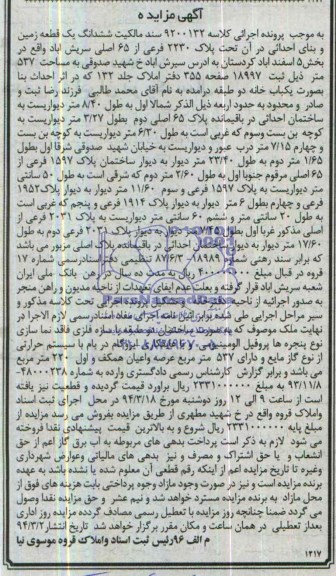 آگهی مزایده
به موجب پرونده اجرائی کلاسه ۹۲۰۰۱۳۲ سند مالکیت ششدانگ یک قطعه زمین
و بنای احداثی در آن تحت پلاک ۲۲۳۰ فرعی از ۶۵ اصلی سریش آباد واقع در
بخش۵ اسفند آباد کردستان به آدرس سریش اباد خ شهید صدوقی به مساحت ۵۳۷
متر ذیل ثبت ۱۸۹۹۷ صفحه ۳۵۵ دفتر املاک جلد ۱۳۲ که در اثر احداث بنا
بصورت یکباب خانه دو طبقه درآمده به نام آقای محمد طالبی فرزند رضا ثبت و
صادر و محدود به حدود اربعه ذیل الذکر شمالا اول به طول ۸/۴۰ متر دیواریست به
ساختمان احداثی در باقیمانده پلاک ۶۵ اصلی دوم بطول ۳/۲۷ متر دیواریست به
کوچه بن بست وسوم که غربی است به طول ۶/۳۰ متر دیواریست به کوچه بن بست
و چهارم ۷/۱۵ متر درب عبور و دیواریست به خیابان شهید صدوقی شرقا اول بطول
۱/۶۵ متر دوم به طول ۲۳/۴۰ متر دیوار به دیوار ساختمان پلاک ۱۵۹۷ فرعی از
۶۵ اصلی مرقوم جنوبا اول به طول ۲/۶۰ متر دوم که شرقی است به طول ۵۰ سانتی
متر دیواریست به پلاک ۱۵۹۷ فرعی و سوم ۱۱/۶۰ متر دیوار به دیوار پلاک۱۹۵۲
فرعی و چهارم بطول ۶ متر دیوار به دیوار پلاک ۱۹۱۴ فرعی و پنجم که غربی است
به طول ۲۰ سانتی متر و ششم ۶۰ سانتی متر دیواریست به پلاک ۲۰۳۱ فرعی از
اصلی مذکور غربا اول بطول ۷/۴۵ متر دیوار به دیوار پلاک ۲۰۳۱ فرعی دوم به طول
۱۷/۶۰ متر دیوار به دیوار ساختمان احداثی در باقیمانده پلاک اصلی مزبور می باشد
که برابر سند رهنی شماره ۱۸۹۸۹ ۸۷/۶/۳ تنظیمی دفتر اسنادرسمی شماره ۱۷
قروه در قبال مبلغ ریال به مدت ده سال در رهن بانک ملی ایران
شعبه سریش آباد قرار گرفته و بعلت عدم ایفای تعهدات از ناحیه مدیون و راهن منجر
به صدور اجرائیه از ناحیه دفترخانه و تشکیل پرونده اجرائی تحت کلاسه مذکور و
سیر مراحل اجرایی طی شده برابر آئین نامه اجرای مفاد اسناد رسمی لازم الاجرا در
نهایت ملک موصوف که به صورت ساختمان دو طبقه با سازه فلزی فاقد نما سازی
نوع پنجره ها پروفیل الومینیومی بام با سیستم حرارتی
از نوع گاز مایع و دارای ۵۳۷ متر مربع عرصه واعیان همکف و اول ۲۳۰ متر مربع
می باشد و برابر گزارش کارشناس رسمی دادگستری وارده به شماره ۴۸۰۰۰۲۳۸-
۹۳/۱۱/۸ به مبلغ ۲۳۳۱۰۰۰۰۰۰ ریال براورد قیمت گردیده و قطعیت نیز یافته
است از ساعت ۹ الی ۱۲ روز دوشنبه مورخ ۹۴/۳/۱۸ در محل اجرای ثبت اسناد
واملاک قروه واقع در خ شهید مطهری از طریق مزایده بفروش می رسد مزایده از
مبلغ پایه ۲۳۳۱۰۰۰۰۰۰ ریال شروع و به بالاترین قیمت پیشنهادی نقدا فروخته
می شود لازم به ذکر است پرداخت بدهی های مربوطه به اب برق گاز اعم از حق
انشعاب و یا حق اشتراک و مصرف و نیز بدهی های مالیاتی وعوارض شهرداری
وغیره تا تاریخ مزایده اعم از اینکه رقم قطعی آن معلوم شده یا نشده باشد به عهده
برنده مزایده است و نیز در صورت وجود مازاد وجوه پرداختی بابت هزینه های فوق از
محل مازاد به برنده مزایده مسترد خواهد شد و نیم عشر و حق مزایده نقدا وصول
می گردد ضمنا چنانچه روز مزایده با تعطیل رسمی مصادف گردده مزایده روز اداری
بعداز تعطیلی در همان ساعت و مکان مقرر برگزار خواهد شد تاریخ انتشار۹۴/۳/۲
م الف ۹۶رئیس ثبت اسناد واملاک قروه موسوی نیا
۱۲۱۷